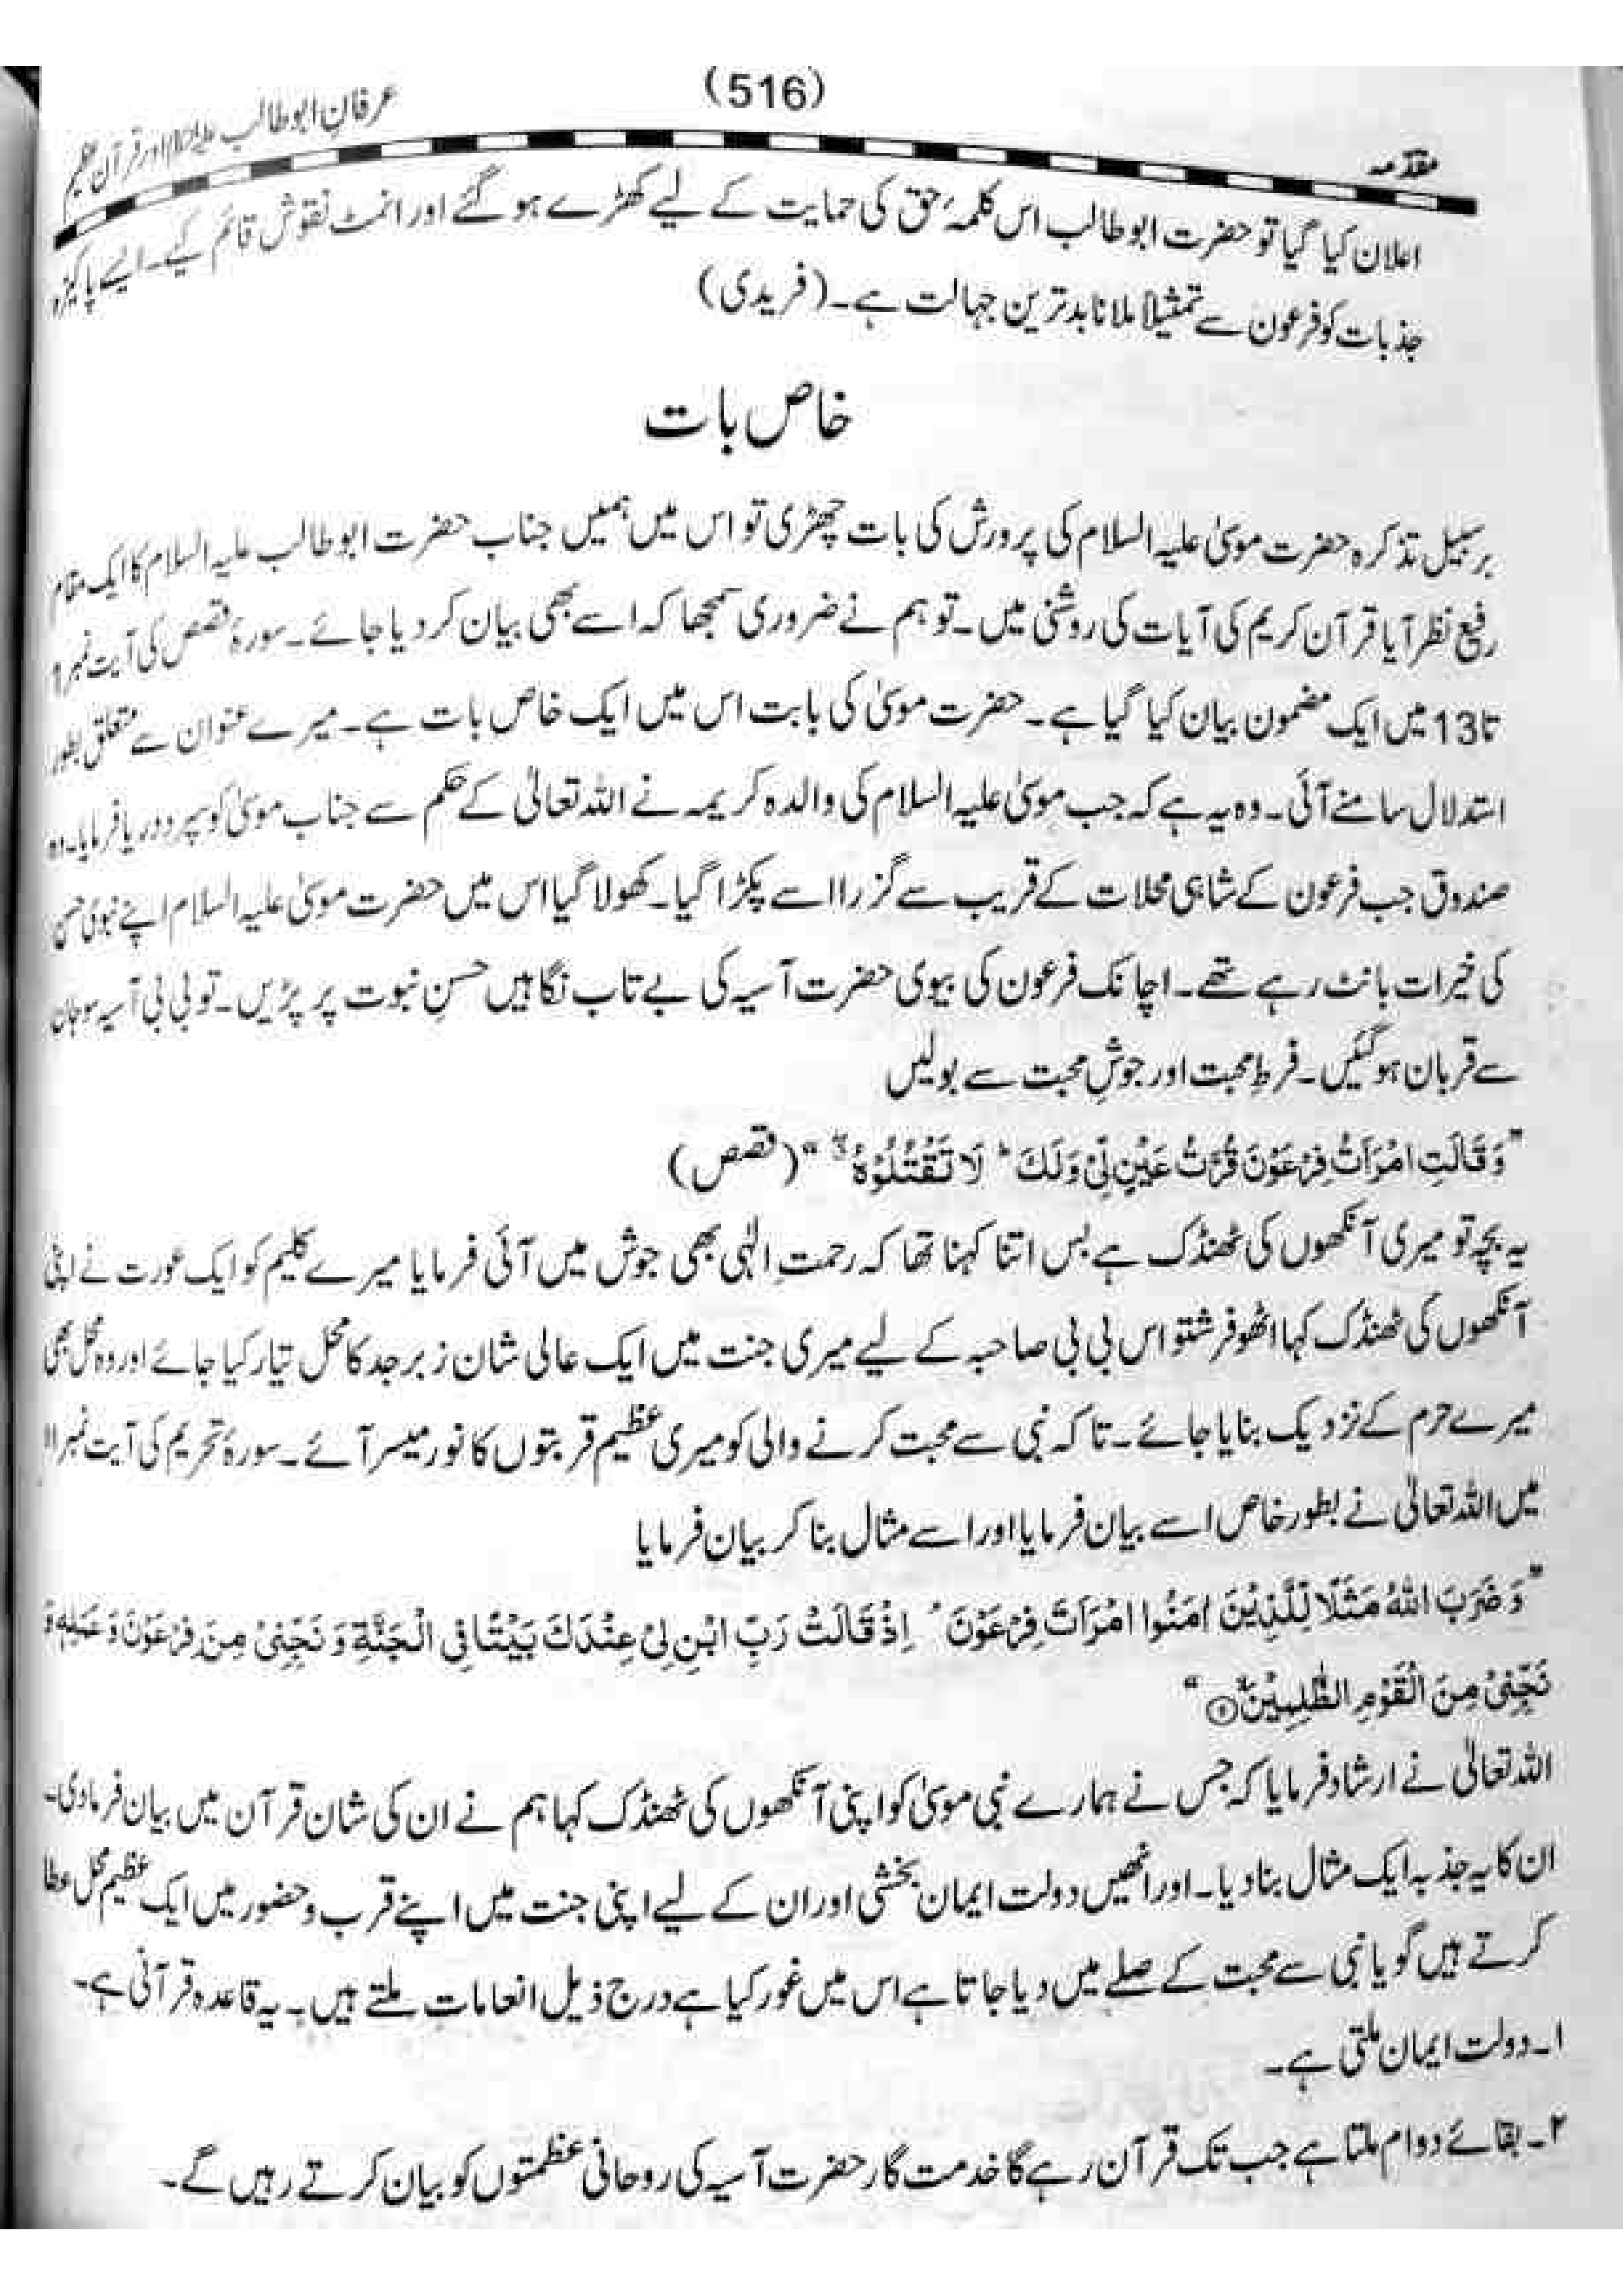 (516)
عرفانِ ابوطالب علیہ السلام اور قرآن عظیم
مقدمہ
اعلان کیا گیا تو حضرت ابوطالب اس کلمۂ حق کی حمایت کے لیے کھڑے ہو گئے اور انمٹ نقوش قائم کیے۔ ایسے پاکیزہ
جذبات کو فرعون سے تمثیلاً ملانا بدترین جہالت ہے۔ (فریدی)
خاص بات
برسبیل تذکرہ حضرت موسیٰ علیہ السلام کی پرورش کی بات چھڑی تو اس میں ہمیں جناب حضرت ابوطالب علیہ السلام کا ایک مقام
رفیع نظر آیا قرآن کریم کی آیات کی روشنی میں۔ تو ہم نے ضروری سمجھا کہ اسے بھی بیان کر دیا جائے۔ سورۂ قصص کی آیت نمبر ۹
تا 13 میں ایک مضمون بیان کیا گیا ہے۔ حضرت موسیٰ کی بابت اس میں ایک خاص بات ہے۔ میرے عنوان سے متعلق بطور
استدلال سامنے آئی۔ وہ یہ ہے کہ جب موسیٰ علیہ السلام کی والدہ کریمہ نے اللہ تعالیٰ کے حکم سے جناب موسیٰ کو سپرد دریا فرمایا۔ وہ
صندوق جب فرعون کے شاہی محلات کے قریب سے گزرا اسے پکڑا گیا۔ کھولا گیا اس میں حضرت موسیٰ علیہ السلام اپنے نبوی حسن
کی خیرات بانٹ رہے تھے۔ اچانک فرعون کی بیوی حضرت آسیہ کی بے تاب نگاہیں حسنِ نبوت پر پڑیں۔ تو بی بی آسیہ سو جان
سے قربان ہو گئیں۔ فرطِ محبت اور جوشِ محبت سے بولیں
”وَقَالَتِ امْرَاَتُ فِرْعَوْنَ قُرَّتُ عَيْنٍ لِّيْ وَلَكَ ؕ لَا تَقْتُلُوْهُ ۖ“ (قصص)
یہ بچہ تو میری آنکھوں کی ٹھنڈک ہے بس اتنا کہنا تھا کہ رحمتِ الٰہی بھی جوش میں آئی فرمایا میرے کلیم کو ایک عورت نے اپنی
آنکھوں کی ٹھنڈک کہا اٹھو فرشتو اس بی بی صاحبہ کے لیے میری جنت میں ایک عالی شان زبرجد کا محل تیار کیا جائے اور وہ محل بھی
میرے حرم کے نزدیک بنایا جائے۔ تا کہ نبی سے محبت کرنے والی کو میری عظیم قربتوں کا نور میسر آئے۔ سورۂ تحریم کی آیت نمبر ۱۱
میں اللہ تعالیٰ نے بطور خاص اسے بیان فرمایا اور اسے مثال بنا کر بیان فرمایا
”وَ ضَرَبَ اللّٰهُ مَثَلًا لِّلَّذِيْنَ اٰمَنُوا امْرَاَتَ فِرْعَوْنَ ۘ اِذْ قَالَتْ رَبِّ ابْنِ لِيْ عِنْدَكَ بَيْتًا فِي الْجَنَّةِ وَ نَجِّنِيْ مِنْ فِرْعَوْنَ وَ عَمَلِهٖ وَ
نَجِّنِيْ مِنَ الْقَوْمِ الظّٰلِمِيْنَ“
اللہ تعالیٰ نے ارشاد فرمایا کہ جس نے ہمارے نبی موسیٰ کو اپنی آنکھوں کی ٹھنڈک کہا ہم نے ان کی شان قرآن میں بیان فرمادی۔
ان کا یہ جذبہ ایک مثال بنا دیا۔ اور انھیں دولت ایمان بخشی اور ان کے لیے اپنی جنت میں اپنے قرب و حضور میں ایک عظیم محل عطا
کرتے ہیں گویا نبی سے محبت کے صلے میں دیا جاتا ہے اس میں غور کیا ہے درج ذیل انعامات ملتے ہیں۔ یہ قاعدہ قرآنی ہے۔
۱۔ دولت ایمان ملتی ہے۔
۲۔ بقائے دوام ملتا ہے جب تک قرآن رہے گا خدمت گار حضرت آسیہ کی روحانی عظمتوں کو بیان کرتے رہیں گے۔